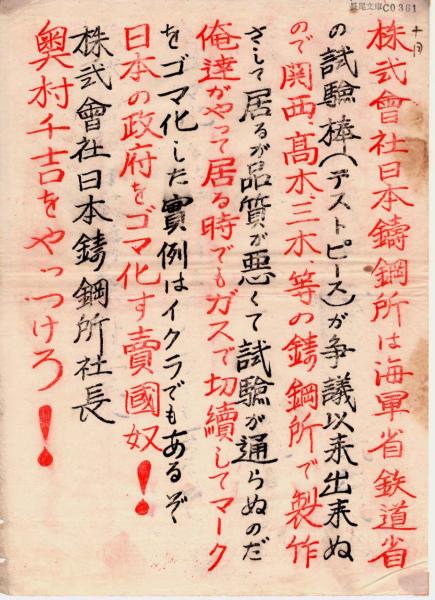 長尾文庫C0361
十月
株式會社日本鑄鋼所は海軍省鉄道省
の試驗棒(テストピース)が争議以来出来ぬ
ので関西、高木、三木、等の鋳鋼所で製作
さして居るが品質が悪くて試驗が通らぬのだ
俺達がやって居る時でもガスで切續してマーク
をゴマ化した實例はイクラでもあるぞ、
日本の政府をゴマ化す賣國奴!
株式會社日本鋳鋼所社長
奥村千吉をやっつけろ!